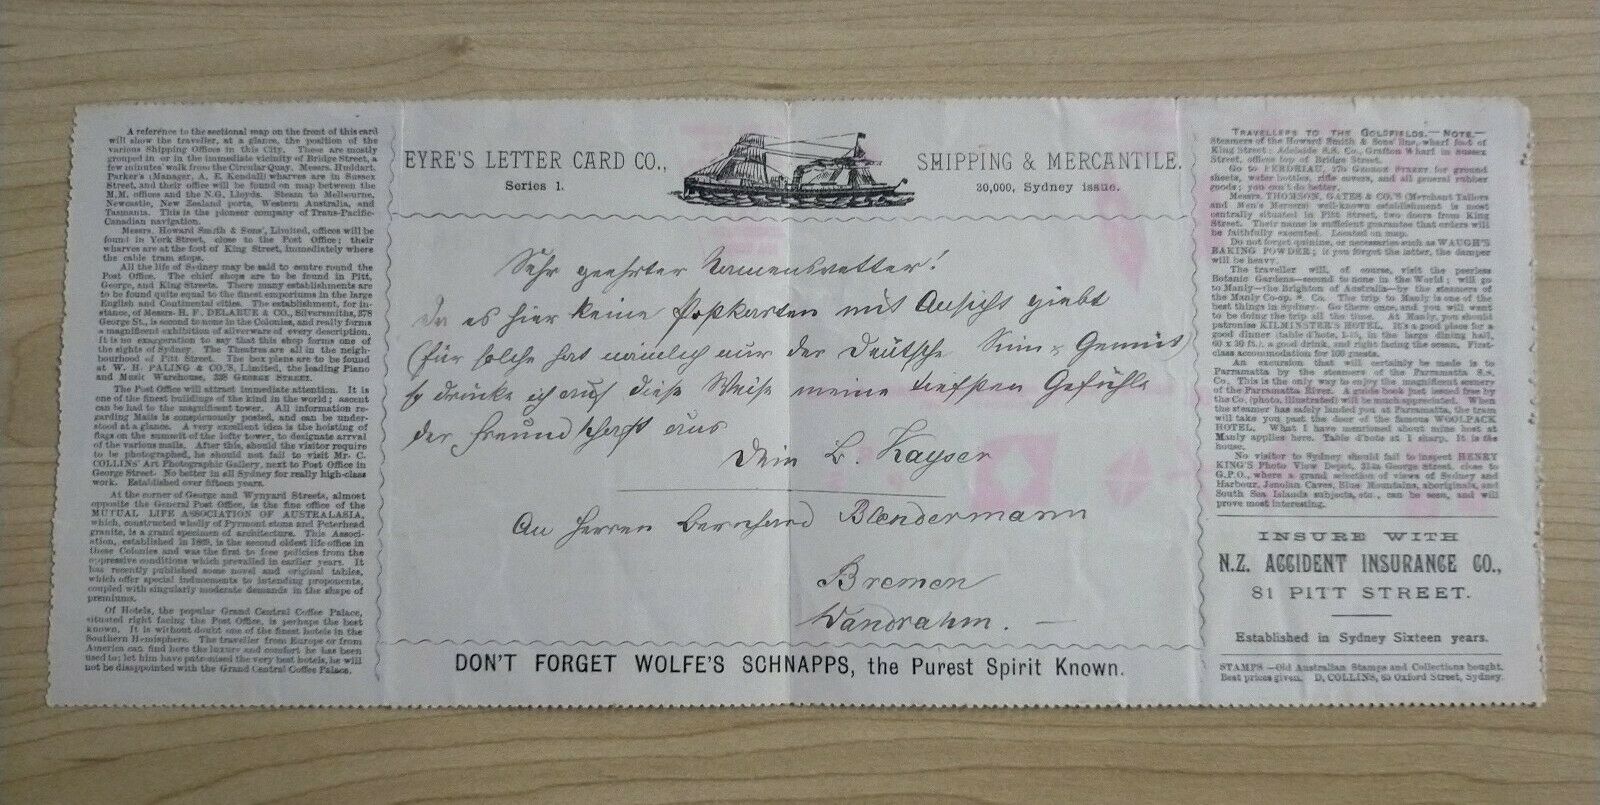 A reference to the sectional map on the front of this card
will show the traveller, at a glance, the position of the
various Shipping Offices in this City. These are mostly
grouped in or in the immediate vicinity of Bridge Street, a
few minutes' walk from the Circular Quay. Messrs. Huddart,
Parker's (Manager, A. E. Kendall) wharves are in Sussex
Street, and their office will be found on map between the
M.M. offices and the N.G. Lloyds. Steam to Melbourne,
Newcastle, New Zealand ports, Western Australia, and
Tasmania. This is the pioneer company of Trans-Pacific-
Canadian navigation.
Messrs. Howard Smith & Sons', Limited, offices will be
found in York Street, close to the Post Office; their
wharves are at the foot of King Street, immediately where
the cable tram stops.
All the life of Sydney may be said to centre round the
Post Office. The chief shops are to be found in Pitt,
George, and King Streets. There many establishments are
to be found quite equal to the finest emporiums in the large
English and Continental cities. The establishment, for in-
stance, of Messrs. H. F. DELARUE & CO., Silversmiths, 378
George St., is second to none in the Colonies, and really forms
a magnificent exhibition of silverware of every description.
It is no exaggeration to say that this shop forms one of
the sights of Sydney. The Theatres are all in the neigh-
bourhood of Pitt Street. The box plans are to be found
at W. H. PALING & CO.'S, Limited, the leading Piano
and Music Warehouse, 338 GEORGE STREET.
The Post Office will attract immediate attention. It is
one of the finest buildings of the kind in the world; ascent
can be had to the magnificent tower. All information re-
garding Mails is conspicuously posted, and can be under-
stood at a glance. A very excellent idea is the hoisting of
flags on the summit of the lofty tower, to designate arrival
of the various mails. After this, should the visitor require
to be photographed, he should not fail to visit Mr. C.
COLLINS' Art Photographic Gallery, next to Post Office in
George Street. No better in all Sydney for really high-class
work. Established over fifteen years.
At the corner of George and Wynyard Streets, almost
opposite the General Post Office, is the fine office of the
MUTUAL LIFE ASSOCIATION OF AUSTRALASIA,
which, constructed wholly of Pyrmont stone and Peterhead
granite, is a grand specimen of architecture. This Associ-
ation, established in 1869, is the second oldest life office in
these Colonies and was the first to free policies from the
oppressive conditions which prevailed in earlier years. It
has recently published some novel and original tables,
which offer special inducements to intending proponents,
coupled with singularly moderate demands in the shape of
premiums.
Of Hotels, the popular Grand Central Coffee Palace,
situated right facing the Post Office, is perhaps the best
known. It is without doubt one of the finest hotels in the
Southern Hemisphere. The traveller from Europe or from
America can find here the luxury and comfort he has been
used to; let him have patronised the very best hotels, he will
not be disappointed with the Grand Central Coffee Palace.
EYRE'S LETTER CARD CO., SHIPPING & MERCANTILE.
Series 1. 20,000, Sydney issue.
Sehr geehrter Namensvetter!
Da es hier keine Postkarten mit Ansicht giebt
(für solche hat nämlich nur der Deutsche Sinn & Gemüt)
so drücke ich auf diese Weise meine tiefsten Gefühle
der Freundschaft aus
Dein B. Kayser
An Herren Bernhard Blendermann
Bremen
Wandrahm.
DON'T FORGET WOLFE'S SCHNAPPS, the Purest Spirit Known.
TRAVELLERS TO THE GOLDFIELDS.—NOTE.—
Steamers of the Howard Smith & Sons' line, wharf foot of
King Street; Adelaide S.S. Co., Grafton Wharf in Sussex
Street, offices top of Bridge Street.
Go to PERDRIAU, 270 GEORGE STREET, for ground
sheets, water bottles, rifle covers, and all general rubber
goods; you can't do better.
Messrs. THOMSON, GATES & CO.'S (Merchant Tailors
and Men's Mercers) well-known establishment is most
centrally situated in Pitt Street, two doors from King
Street. Their name is sufficient guarantee that orders will
be faithfully executed. Located on map.
Do not forget quinine, or necessaries such as WAUGH'S
BAKING POWDER; if you forget the latter, the damper
will be heavy.
The traveller will, of course, visit the peerless
Botanic Gardens—second to none in the World; will go
to Manly—the Brighton of Australia—by the steamers of
the Manly Co-op. S. Co. The trip to Manly is one of the
best things in Sydney. Go there once, and you will want
to be doing the trip all the time. At Manly, you should
patronise KILMINSTER'S HOTEL. It's a good place for a
good dinner (table d'hote, 1.15, in the large dining hall,
60 x 30 ft.), a good drink, and right facing the ocean. First-
class accommodation for 100 guests.
An excursion that will certainly be made is to
Parramatta by the steamers of the Parramatta S.s.
Co. This is the only way to enjoy the magnificent scenery
of the Parramatta River. A guide book just issued free by
the Co. (photo. illustrated) will be much appreciated. When
the steamer has safely landed you at Parramatta, the tram
will take you past the door of the famous WOOLPACK
HOTEL. What I have mentioned about mine host at
Manly applies here. Table d'hote at 1 sharp. It is the
house.
No visitor to Sydney should fail to inspect HENRY
KING'S Photo View Depot, George Street, close to
G.P.O., where a grand selection of views of Sydney and
Harbour, Jenolan Caves, Blue Mountains, aboriginals, and
South Sea Islands subjects, etc., can be seen, and will
prove most interesting.
INSURE WITH
N.Z. ACCIDENT INSURANCE CO.,
81 PITT STREET.
Established in Sydney Sixteen years.
STAMPS—Old Australian Stamps and Collections bought.
Best prices given. D. COLLINS, 65 Oxford Street, Sydney.